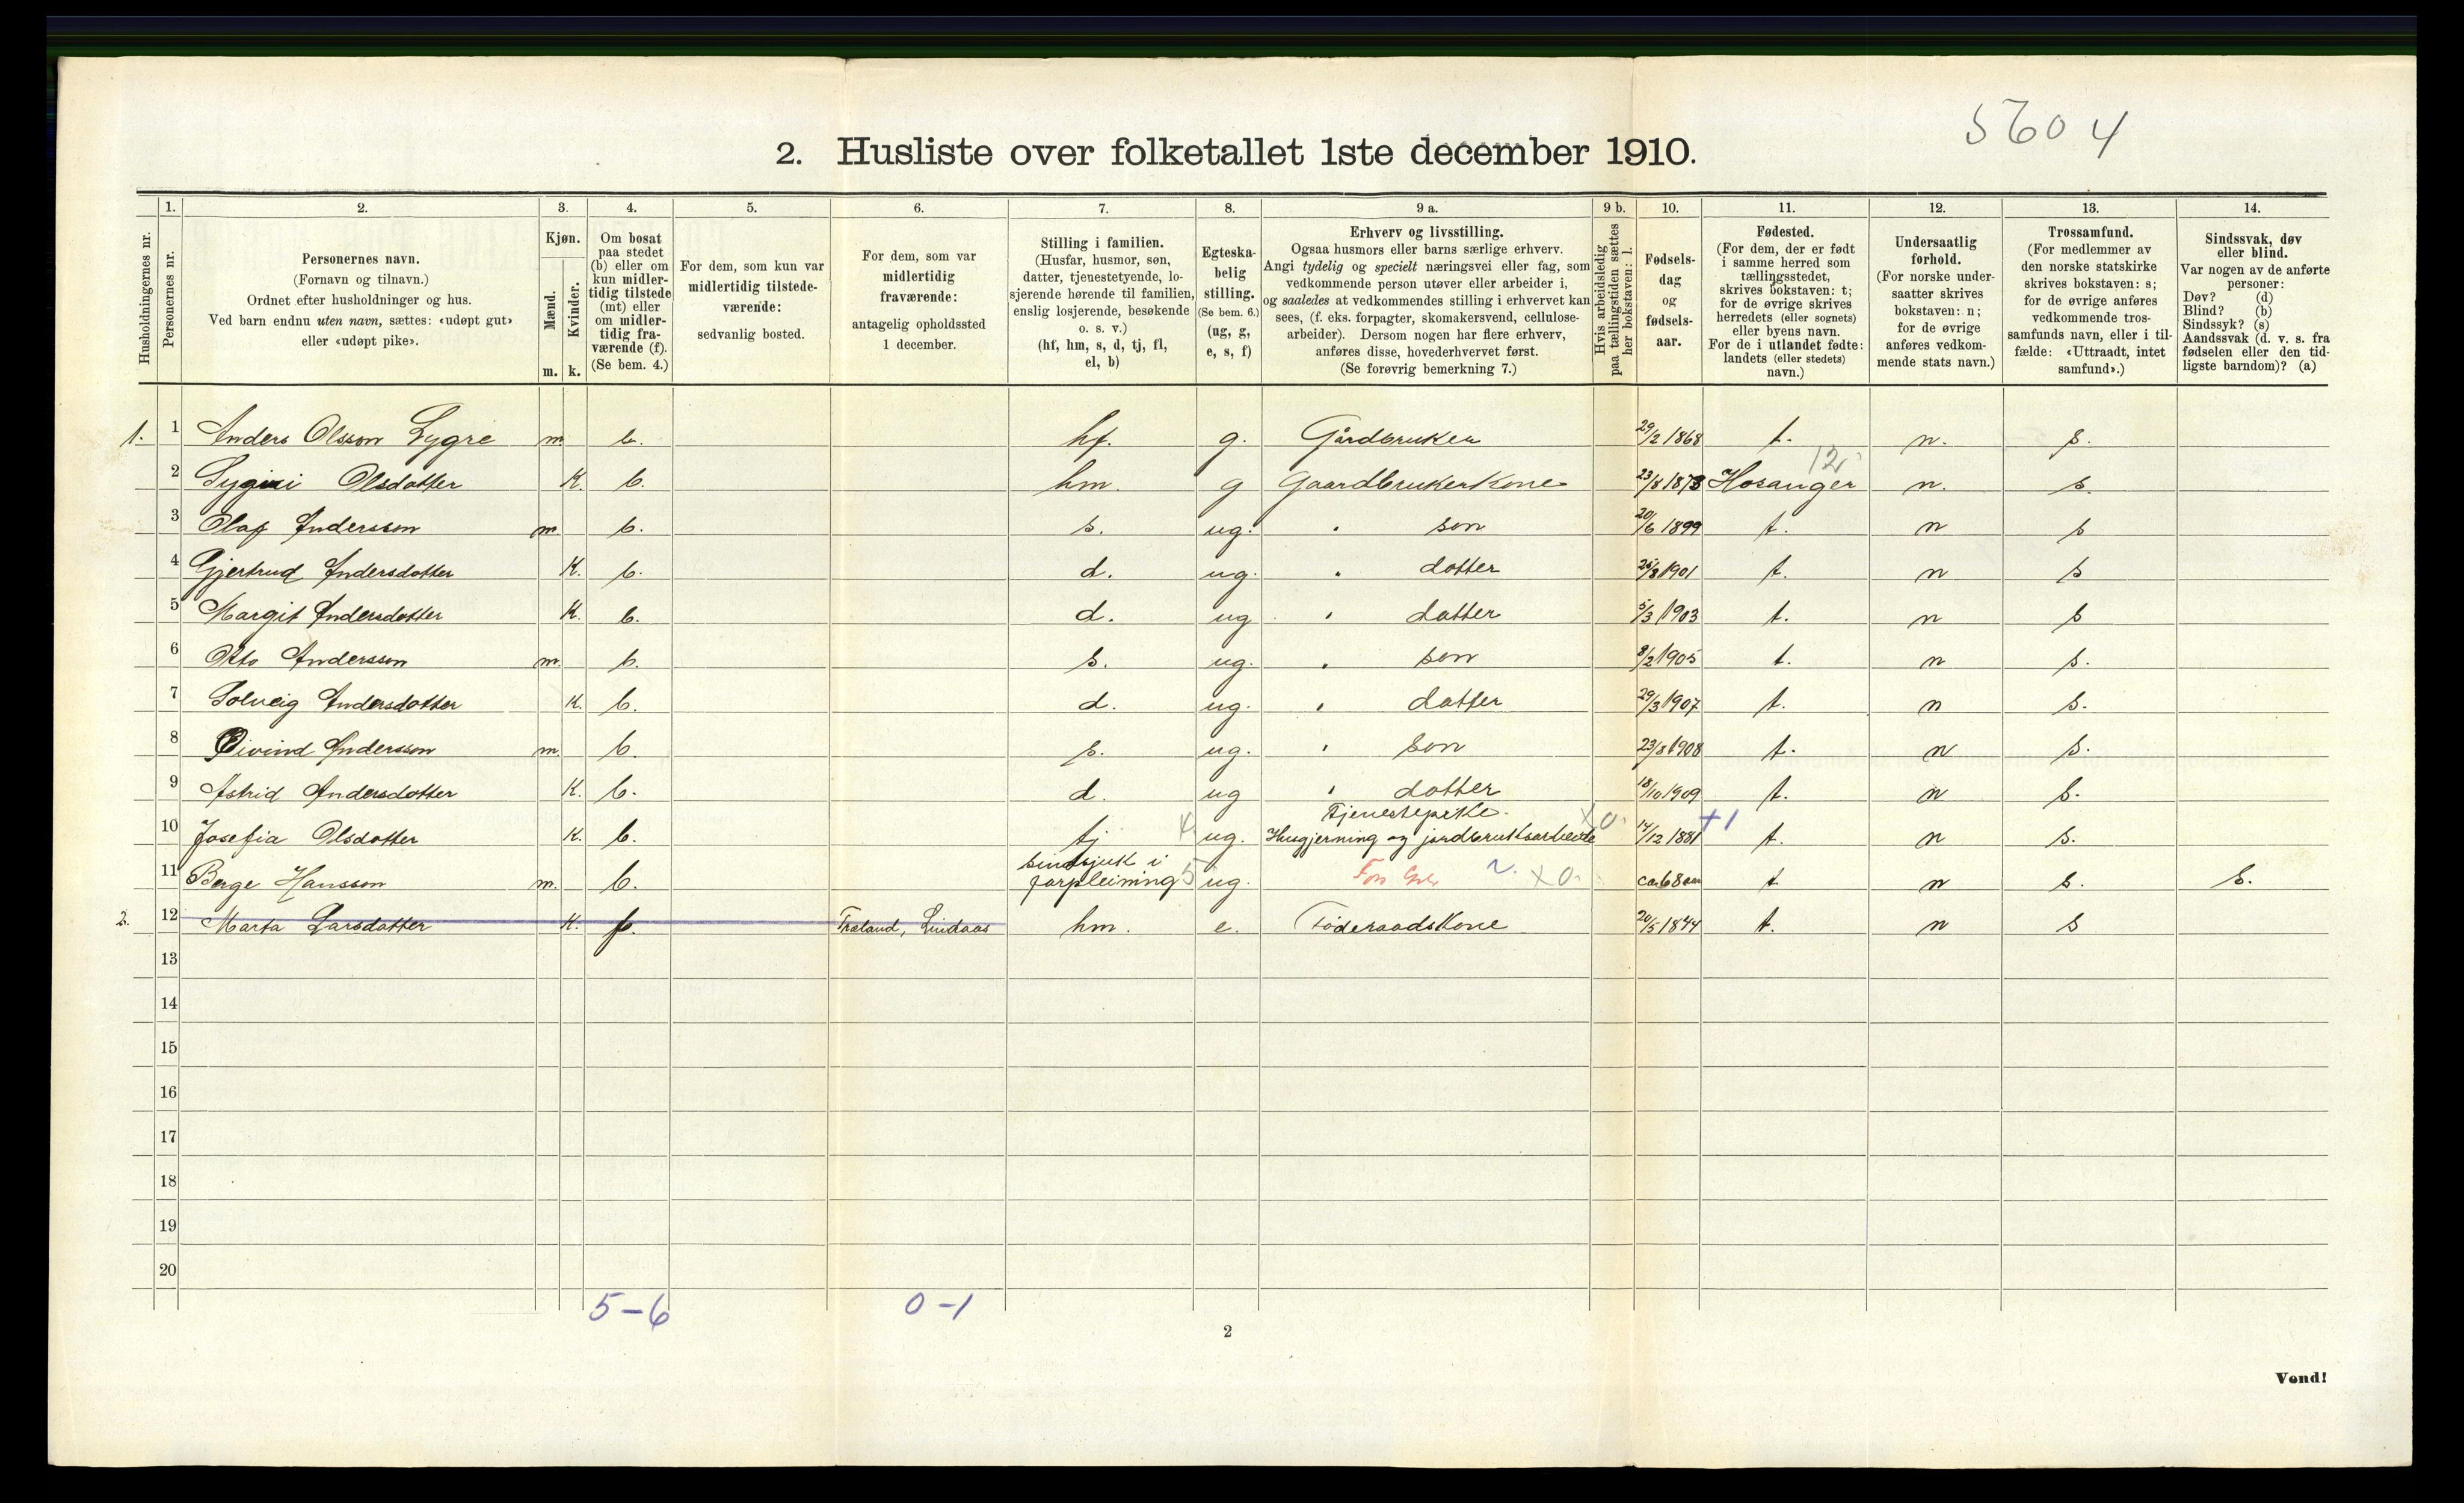 5604
2. Husliste over folketallet 1ste december 1910.
Husholdningernes nr.
1.
Personernes nr.
2.
Personernes navn.
(Fornavn og tilnavn.)
Ordnet efter husholdninger og hus.
Ved barn endnu uten navn, sættes: «udøpt gut»
eller «udøpt pike».
3.
Kjøn.
Mænd.
Kvinder.
m. k.
4.
Om bosat
paa stedet
(b) eller om
kun midler-
tidig tilstede
(mt) eller
om midler-
tidig fra-
værende (f).
(Se bem. 4.)
5.
For dem, som kun var
midlertidig tilstede-
værende:
sedvanlig bosted.
6.
For dem, som var
midlertidig
fraværende:
antagelig opholdssted
1 december.
7.
Stilling i familien.
(Husfar, husmor, søn,
datter, tjenestetyende, lo-
sjerende hørende til familien,
enslig losjerende, besøkende
o. s. v.)
(hf, hm, s, d, tj, fl,
el, b)
8.
Egteska-
belig
stilling.
(Se bem. 6.)
(ug, g,
e, s, f)
9 a.
Erhverv og livsstilling.
Ogsaa husmors eller barns særlige erhverv.
Angi tydelig og specielt næringsvei eller fag, som
vedkommende person utøver eller arbeider i,
og saaledes at vedkommendes stilling i erhvervet kan
sees, (f. eks. forpagter, skomakersvend, cellulose-
arbeider). Dersom nogen har flere erhverv,
anføres disse, hovederhvervet først.
(Se forøvrig bemerkning 7.)
9 b.
Hvis arbeidsledig
paa tællingstiden sættes
her bokstaven: l.
10.
Fødsels-
dag
og
fødsels-
aar.
11.
Fødested.
(For dem, der er født
i samme herred som
tællingsstedet,
skrives bokstaven: t;
for de øvrige skrives
herredets (eller sognets)
eller byens navn.
For de i utlandet fødte:
landets (eller stedets)
navn.)
12.
Undersaatlig
forhold.
(For norske under-
saatter skrives
bokstaven: n;
for de øvrige
anføres vedkom-
mende stats navn.)
13.
Trossamfund.
(For medlemmer av
den norske statskirke
skrives bokstaven: s;
for de øvrige anføres
vedkommende tros-
samfunds navn, eller i til-
fælde: «Uttraadt, intet
samfund».)
14.
Sindssvak, døv
eller blind.
Var nogen av de anførte
personer:
Døv? (d)
Blind? (b)
Sindssyk? (s)
Aandssvak (d. v. s. fra
fødselen eller den tid-
ligste barndom)? (a)
1. 1 Anders Olsson Lygre m b. hf. g. Gårdbruker 29/2 1868 t. n. s.
12
2 Olsdatter K. b. hm. g Gaardbrukerkone 23/8 1873 Hosanger n. s.
3 Olaf Andersson m. b. s. ug. " son 20/6 1899 t. n s
4 Gjertrud Andersdotter K. b. d. ug. " dotter 1901 t. n s
5 Margit Andersdotter K. b. d. ug " datter 5/3 1903 t. n s
6 Otto Andersson m. b. s. ug. " son 8/2 1905 t. n s.
7 Solveig Andersdotter K. b. d. ug. " datter 29/3 1907 t. n s.
8 Eivind Andersson m. b. s. ug. " son 23/8 1908 t. n s.
9 Astrid Andersdotter K. b. d. ug " dotter 18/10 1909 t. n s.
Tjenestepike.
10 Josefia Olsdotter K. b. tj ug. Husgjerning og jordbruksarbeide x0. 14/12 1881 +1 t. n s.
sindsjuk i
11 Berge Hansson m. b. forpleining 5 ug. x0. ca 68 aar t n s. s.
2. 12 Marta Larsdatter K. f. Træland, Lindaas hm. e. Føderaadskone 20/5 1844 t. n s
13
14
15
16
17
18
19
20
5-6 0-1
2
Vend!